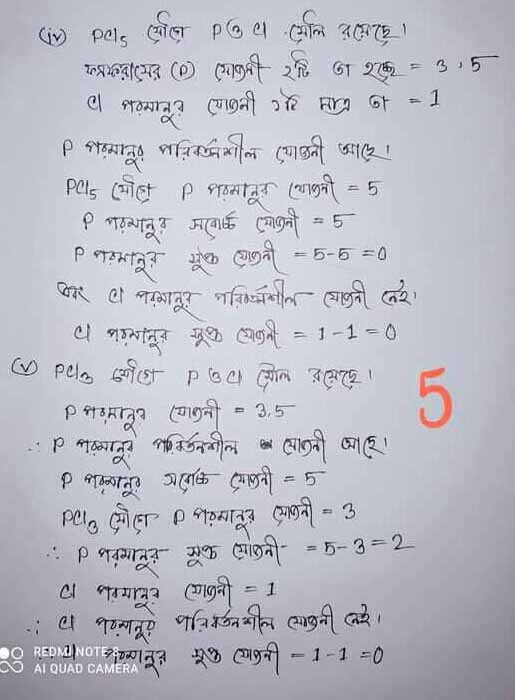 (iv) PCl₅ যৌগে P ও Cl মৌল রয়েছে।
ফসফরাসের (P) যোজনী ২টি তা হচ্ছে = 3, 5
Cl পরমানুর যোজনী ১টি মাত্র তা = 1
P পরমানুর পরিবর্তনশীল যোজনী আছে।
PCl₅ যৌগে P পরমানুর যোজনী = 5
P পরমানুর সর্বোচ্চ যোজনী = 5
P পরমানুর সুপ্ত যোজনী = 5-5 = 0
এবং Cl পরমানুর পরিবর্তনশীল যোজনী নেই।
Cl পরমানুর সুপ্ত যোজনী = 1 - 1 = 0
(v) PCl₃ যৌগে P ও Cl মৌল রয়েছে।
5
P পরমানুর যোজনী = 3,5
∴ P পরমানুর পরিবর্তনশীল যোজনী আছে।
P পরমানুর সর্বোচ্চ যোজনী = 5
PCl₃ যৌগে P পরমানুর যোজনী = 3
∴ P পরমানুর সুপ্ত যোজনী = 5-3 = 2
Cl পরমানুর যোজনী = 1
∴ Cl পরমানুর পরিবর্তনশীল যোজনী নেই।
Cl পরমানুর সুপ্ত যোজনী = 1-1 = 0
REDMI NOTE 8
AI QUAD CAMERA